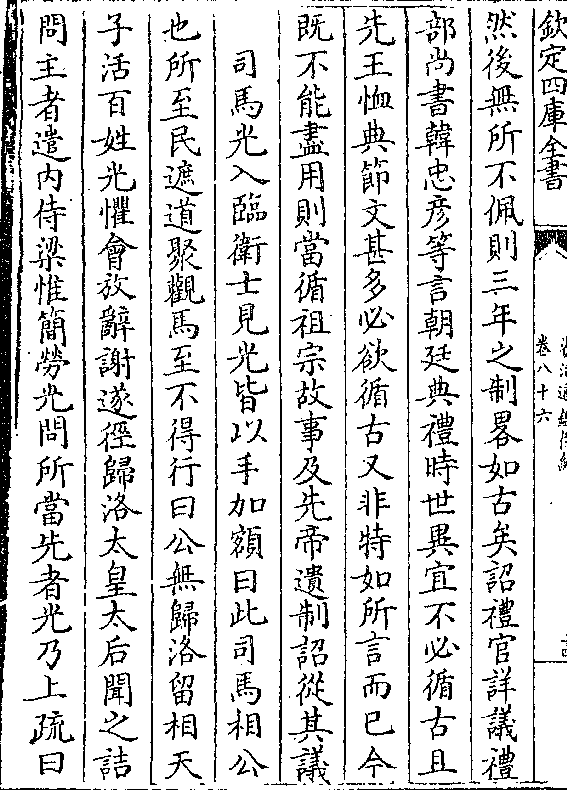 欽定四庫全書
卷八十六
然後無所不佩則三年之制畧如古矣詔禮官詳議禮
部尚書韓忠彦等言朝廷典禮時世異宜不必循古且
先王恤典節文甚多必欲循古又非特如所言而已今
既不能盡用則當循祖宗故事及先帝遺制詔從其議
司馬光入臨衛士見光皆以手加額曰此司馬相公
也所至民遮道聚觀馬至不得行曰公無歸洛留相天
子活百姓光懼會放辭謝遂徑歸洛太皇太后聞之詰
問主者遣内侍梁惟簡勞光問所當先者光乃上疏曰